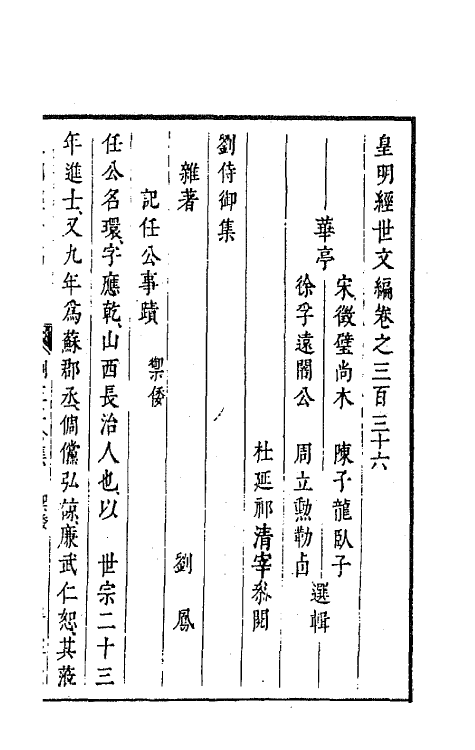 皇明經世文編卷之三百三十六
華亭
宋徵璧尚木 陳子龍臥子
徐孚遠闇公 周立勳勒卣
選輯
杜延祁清宰叅閱
劉侍御集
雜著 劉鳳
記任公事蹟 禦倭
任公名環、字應乾、山西長治人也、以 世宗二十三
年進士、又九年爲蘇郡丞、倜儻弘諒、廉武仁恕、其蒞